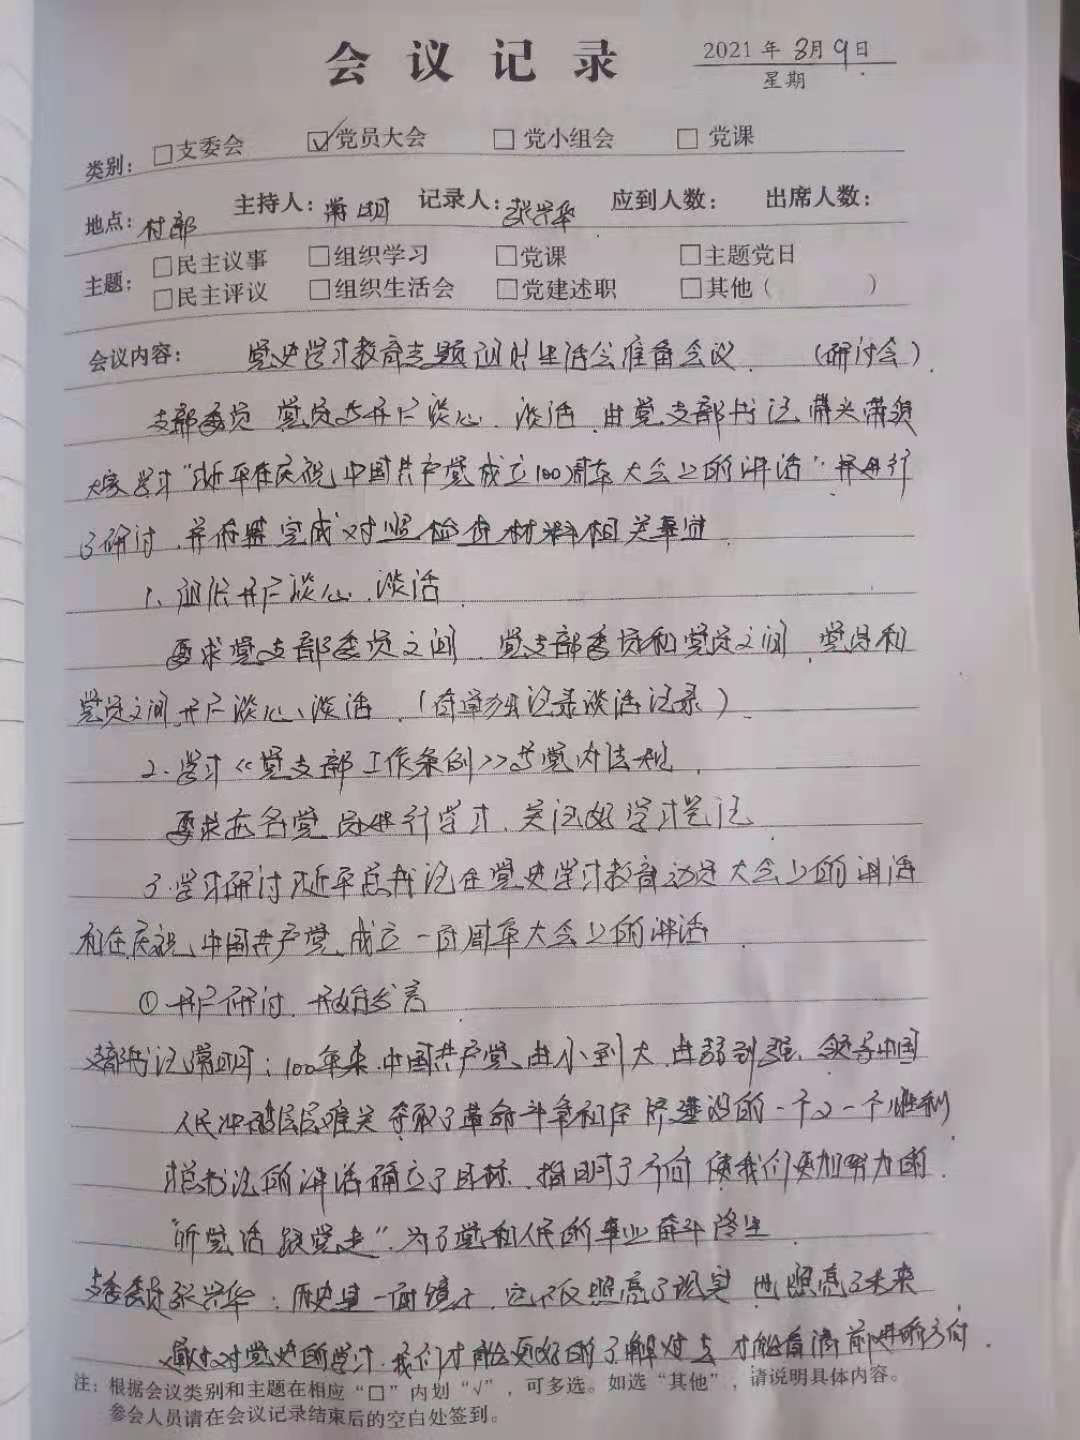 会议记录
2021年8月9日
星期
类别: □支委会 ☑党员大会 □党小组会 □党课
地点:村部 主持人: 记录人:张兴华 应到人数: 出席人数:
主题: □民主议事 □组织学习 □党课 □主题党日
□民主评议 □组织生活会 □党建述职 □其他( )
会议内容: 党史学习教育专题组织生活会准备会议 (研讨会)
支部委员 党员 开尸谈心、谈话,由党支部书记带头带领
大家学习"习近平在庆祝中国共产党成立100周年大会上的讲话"并进行
了研讨,并 完成对照检查材料相关事宜
1、组织开尸谈心、谈话
要求党支部委员之间、党支部委员和党员之间、党员和
党员之间开尸谈心、谈话、(有单独记录谈话记录)
2.学习《党支部工作条例》等党内法规
要求在各党员进行学习、关记好学习笔记
3.学习研讨习近平总书记在党史学习教育动员大会上的讲话
和在庆祝中国共产党成立一百周年大会上的讲话
①开尸研讨、开始发言
支部书记 :100年来,中国共产党由小到大,由弱到强,领导中国
人民冲破层层难关夺取了革命斗争和经济建设的一个又一个胜利
习总书记的讲话确立了目标、指明了方向使我们更加努力的
"听党话跟党走",为了党和人民的事业奋斗终生
支委委员张兴华:历史是一面镜子,它不仅照亮了现实 也照亮了未来
通过对党史的学习,我们才能更好的了解过去才能看清前进的方向.
注:根据会议类别和主题在相应"□"内划"√",可多选。如选"其他",请说明具体内容。
参会人员请在会议记录结束后的空白处签到。